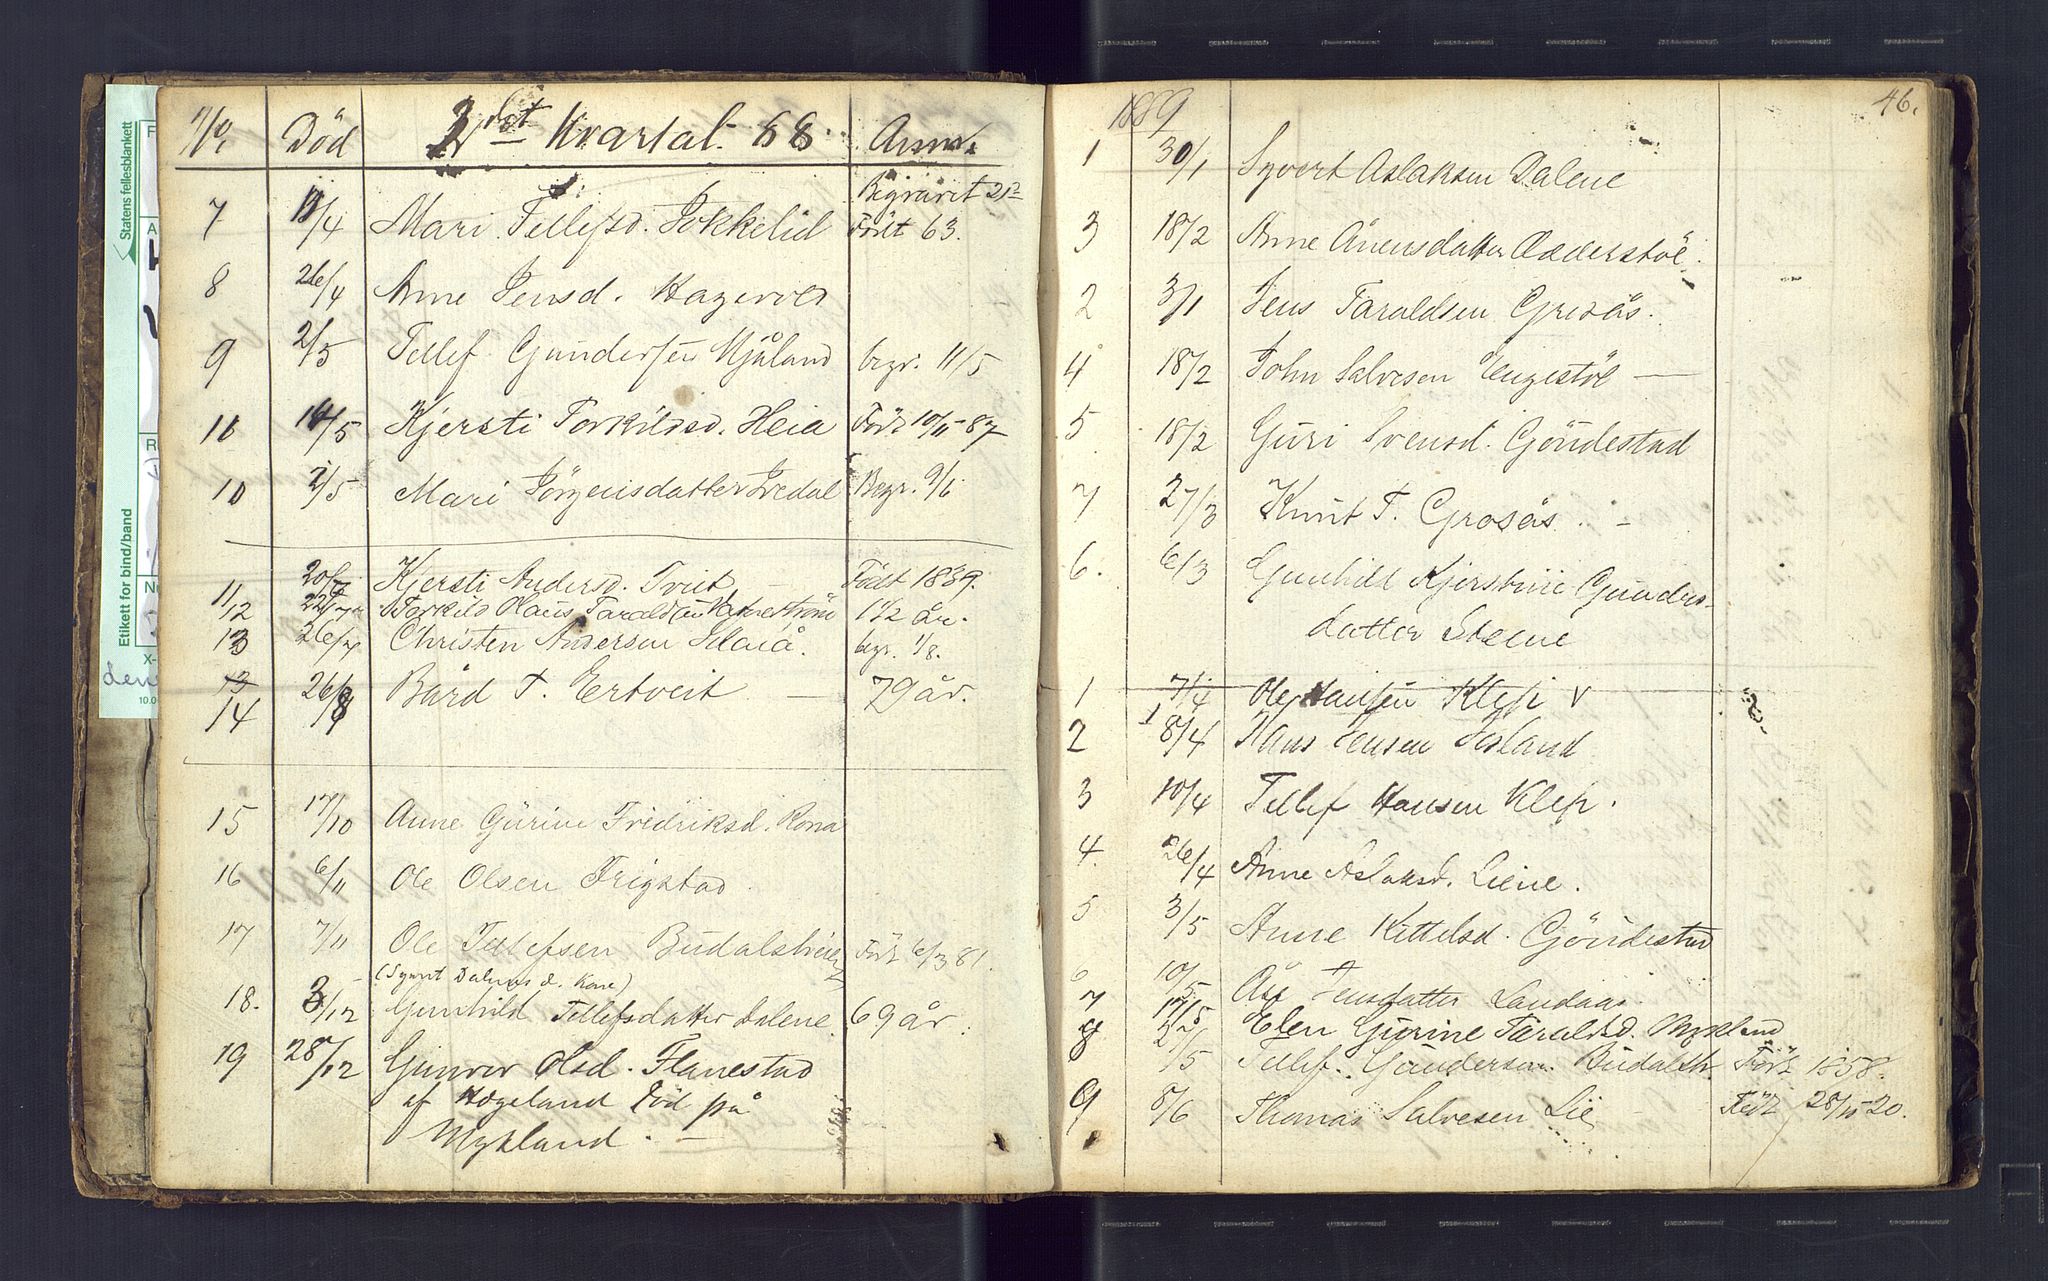 No. Död 2det Kvartal 88. Anm.
Begravet 21
7 /4 Mari Tellefsd. Jokkelid Född 63.
8 26/4 Anne Jensd. Hagevold
9 2/5 Tellef Gundersen Mjåland begr. 11/5
11 14/5 Kjersti Torkildsd. Heia Född 10/11-87
10 2/5 Mari Jörgensdatter Iredal Begr. 9/6
11 20/7 Kjersti Andersd. Tveit Född 1839.
12 22/7 Torkild Olaus Taraldsen 1 1/2 år.
13 26/7 Christen Andersen Heiå. begr. 1/8.
13 26/8 Bård T. Ertveit — 79 år.
14
15 17/10 Anne Gurine Fridriksd. Rona
16 6/11 Ole Olsen Frigstad.
17 7/11 Ole Tellefsen Budals Föd 6/3 81.
(Syvert Dalenes d. Kone)
18. 3/12 Gunhild Tellefsdatter Dalene. 69 år.
19 28/12 Gunvor Olsd. Flanestad
af Hægeland Död på
Mykland. —
46.
1889
1 30/1 Syvert Aslaksen Dalene
3 18/2 Anne Ånensdatter Ödderstöl.
2 3/1 Jens Taraldsen Grosås.
4 18/2 John Salvesen Engestöl —
5 18/2 Guri Svensd. Göndestad
7 27/3 Knut T. Grosås. -
6. 6/3 Gunhild Kjerstine Gunders-
datter Steene
1 7/4 Ole Hansen Klep v
2 18/4 Hans Jensen
3 10/4 Tellef Hansen Klep.
4. 26/4 Anne Aslaksd. Liene.
5 3/5 Anne Kittelsd. Göndestad
6 10/5 Jensdatter Landaas
7 17/5 Elen Gurine Taraldsd. Mykland
8 /5 Tellef. Gundersen. Budalsh. Född 1858.
9 8/6 Thomas Salvesen Lie Född 28/10-20.
Statens fellesblankett
Etikett for bind/band